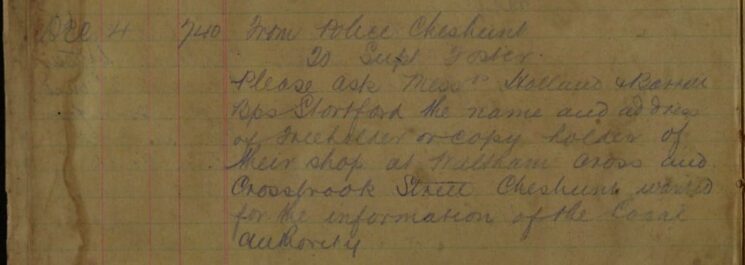 Dec 4 740 From Police Cheshunt
To Supt Foster.
Please ask Messrs Holland & Barrett
Bps Stortford the name and address
of Freeholder or copy holder of
their shop at Waltham Cross and
Crossbrook Street Cheshunt wanted
for the information of the Local
Authority